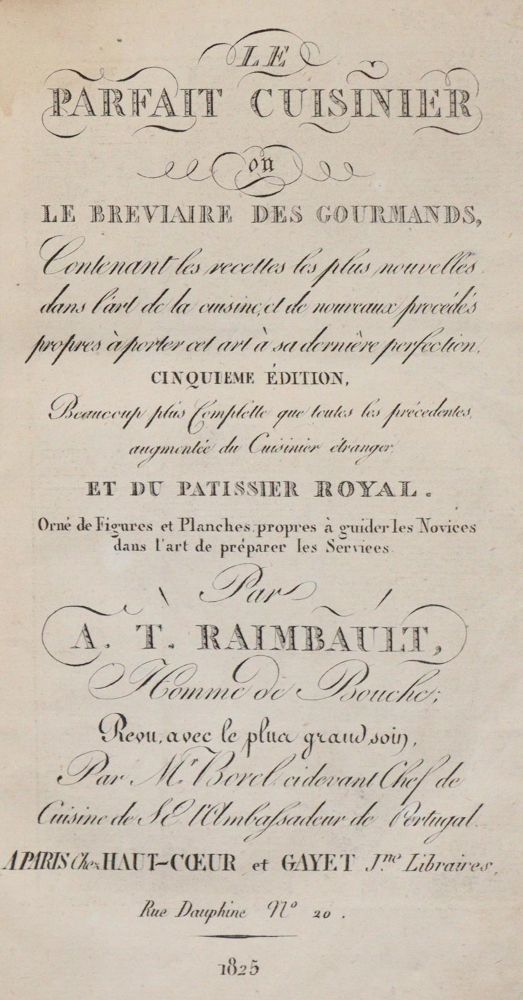 LE
PARFAIT CUISINIER
ou
LE BREVIAIRE DES GOURMANDS,
Contenant les recettes les plus nouvelles
dans l'art de la cuisine, et de nouveaux procédés
propres à porter cet art à sa dernière perfection,
CINQUIEME ÉDITION,
Beaucoup plus Complètte que toutes les précedentes,
augmentée du Cuisinier étranger,
ET DU PATISSIER ROYAL.
Orné de Figures et Planches propres à guider les Novices
dans l'art de préparer les Services.
Par
A. T. RAIMBAULT,
Homme de Bouche;
Revu, avec le plus grand soin,
Par Mr Borel, cidevant Chef de
Cuisine de S.E. l'Ambassadeur de Portugal.
A PARIS Chez HAUT-CŒUR et GAYET Jne Libraires,
Rue Dauphine No 20.
1825